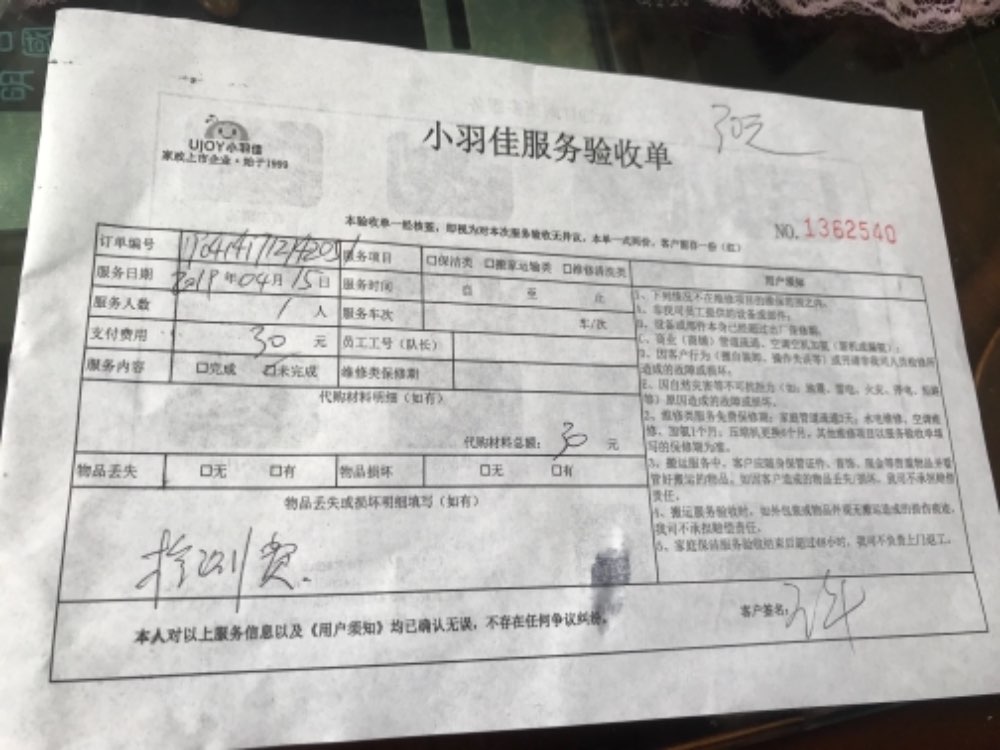 30元
UJOY小羽佳
家政上市企业·始于1999
小羽佳服务验收单
本验收单一经核签，即视为对本次服务验收无异议，本单一式两份，客户留存一份（红）
NO. 1362540
订单编号 服务项目 □保洁类 □搬家运输类 □维修清洗类
服务日期 2019年04月15日 服务时间 自 至 止
服务人数 1 人 服务车次 车/次
支付费用 30 元 员工工号（队长）
服务内容 □完成 ☑未完成 维修类保修期
代购材料明细（如有）
代购材料总额： 30 元
物品丢失 □无 □有 物品损坏 □无 □有
物品丢失或损坏明细填写（如有）
检测费.
用户须知
1、下列情况不在维修项目的维保范围之内：
A、非我司员工提供的设备或部件。
B、设备或部件本身已经超过出厂保修期。
C、商业（商铺）管道疏通、空调空机加氨（新机或漏氨）；
D、因客户行为（擅自装卸、操作失误等）或另请非我司人员检修所
造成的故障或损坏。
E、因自然灾害等不可抗拒力（如：地震、雷电、火灾、停电、短路
等）原因造成的故障或损坏。
2、维修类服务免费保修期：家庭管道疏通3天；水电维修、空调维
修、加氨1个月；压缩机更换6个月。其他维修项目以服务验收单填
写的保修期为准。
3、搬运服务中，客户应随身保管证件、首饰、现金等贵重物品并看
管好搬运的物品。如因客户造成的物品丢失/损坏，我司不承担赔偿
责任。
4、搬运服务验收时，如外包装或物品外观无搬运造成的操作痕迹，
我司不承担赔偿责任。
5、家庭保洁服务验收结束后超过48小时，我司不负责上门返工。
本人对以上服务信息以及《用户须知》均已确认无误，不存在任何争议纠纷。
客户签名：